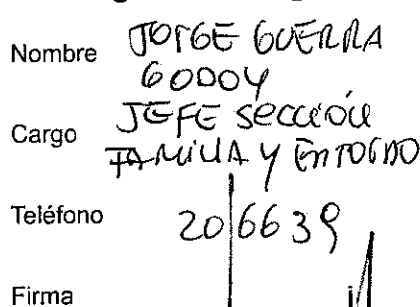 Nombre JORGE GUERRA
GODOY
Cargo JEFE SECCIÓN
FAMILIA Y ENTORNO
Teléfono 206639
Firma